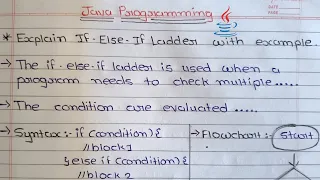 Java Programming
* Explain If-Else-If Ladder with example.
→ The if-else-if ladder is used when a
program needs to check multiple.....
→ The condition are evaluated.....
→ Syntax:- if (condition) {
//block 1
} else if (condition) {
//block 2
→ Flowchart:-
Start